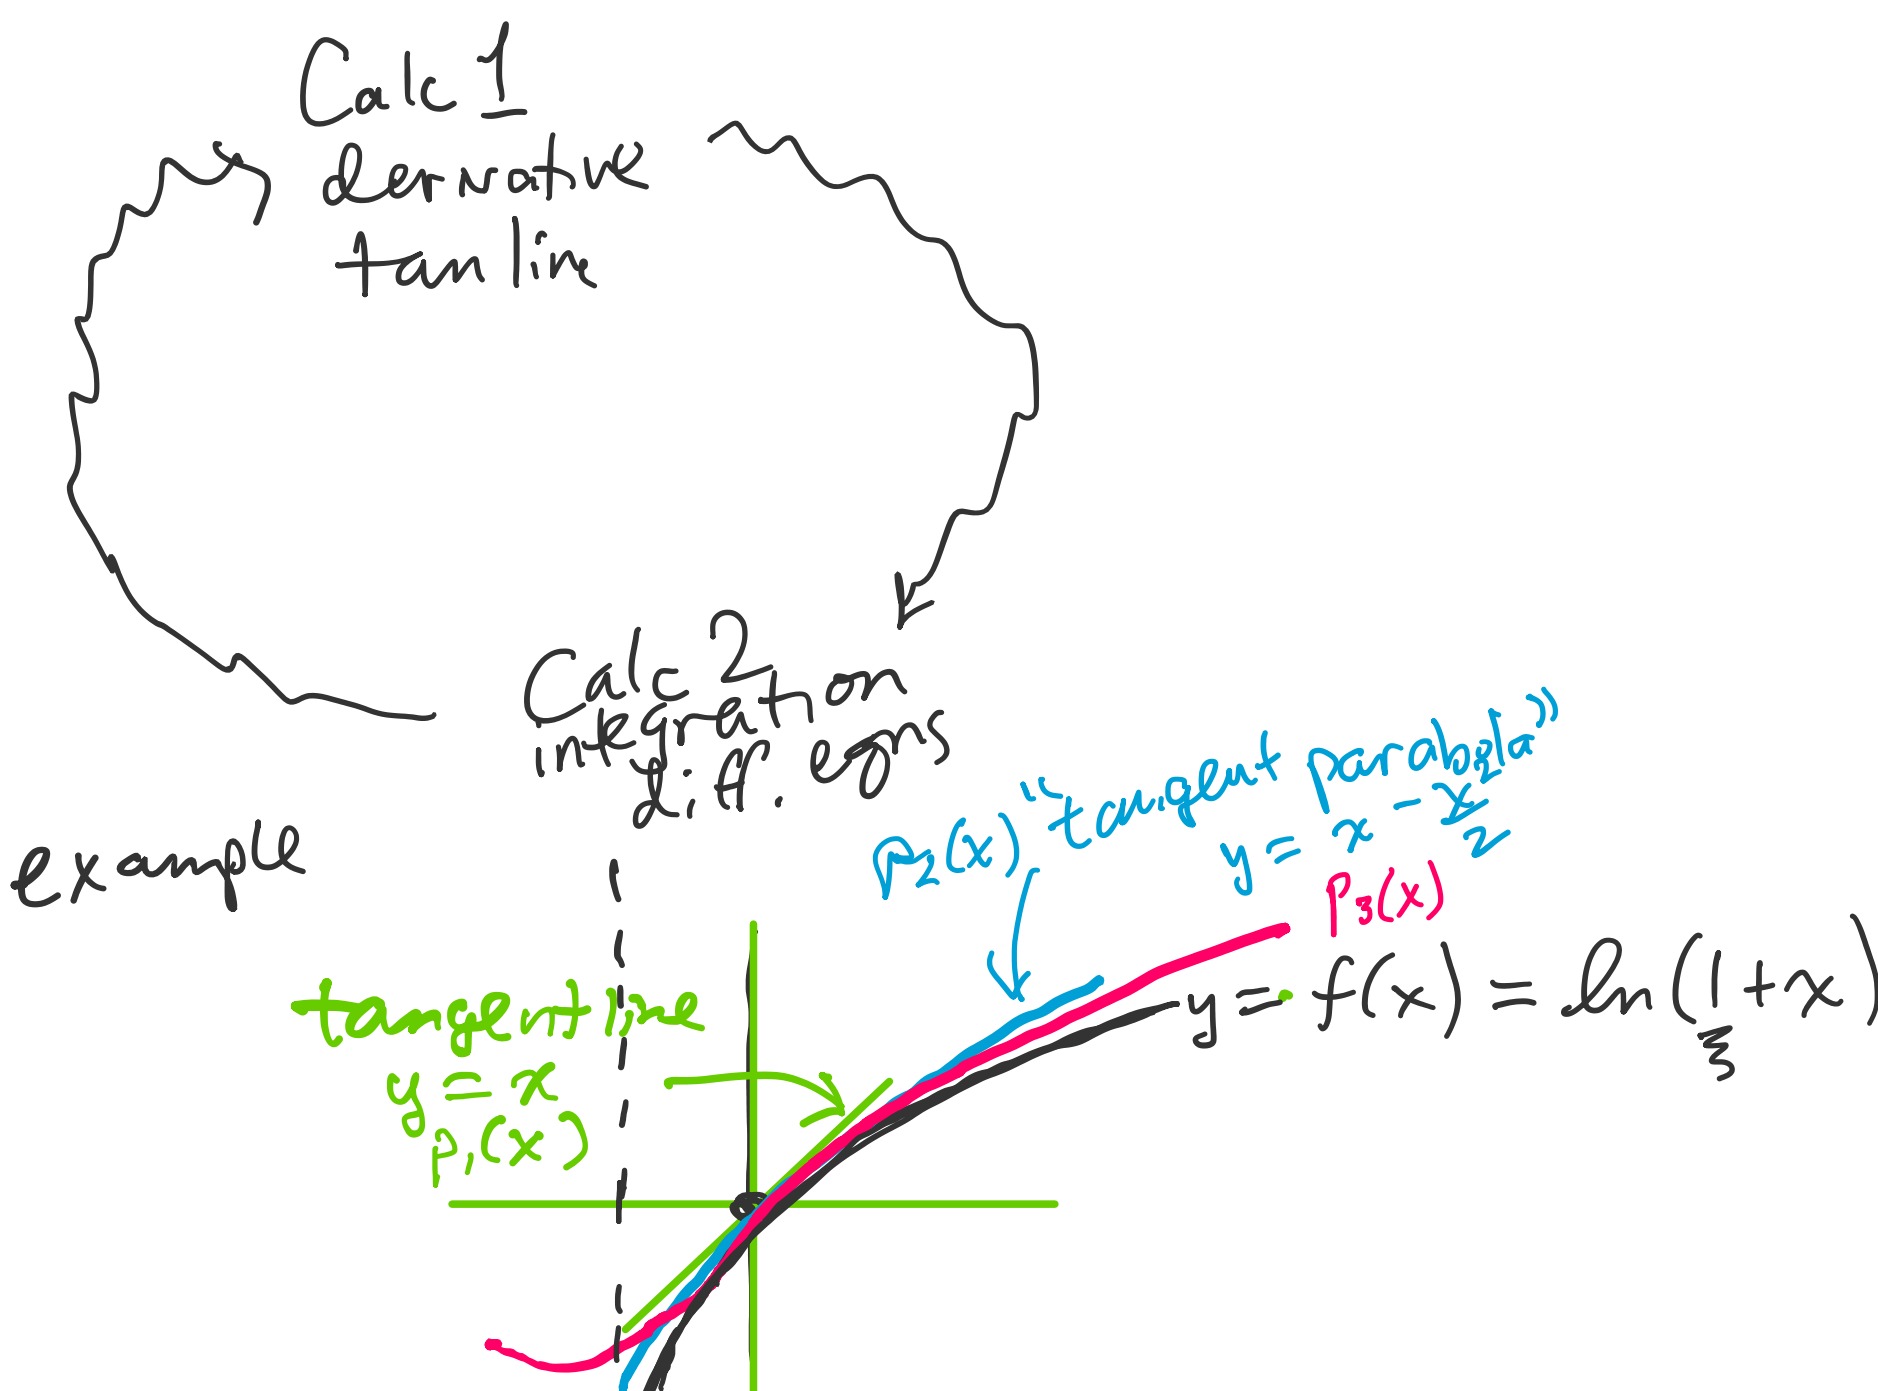 Calc 1
derivative
tan line
Calc 2
integration
diff. eqns
example
p₂(x) "tangent parabola"
y = x - x²/2
p₃(x)
y = f(x) = ln(1+x)
tangent line
y = x
p₁(x)